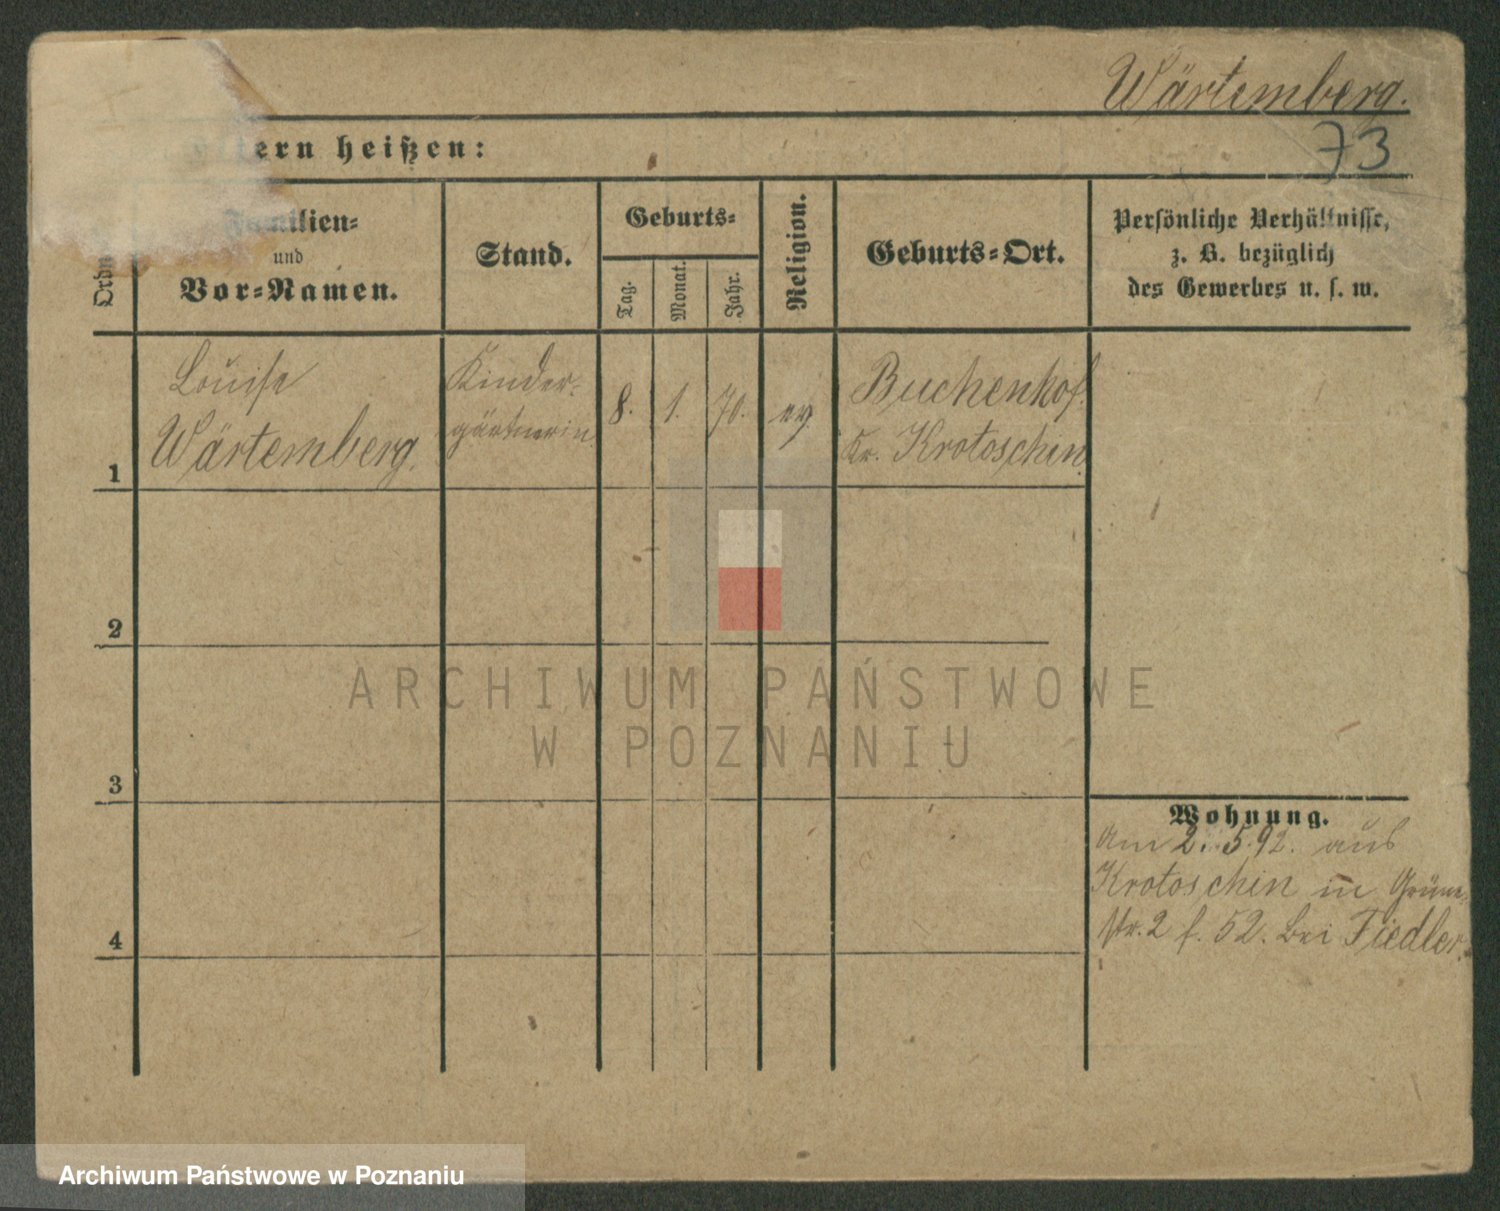 Wärtemberg.
73
ern heißen:
Ordn
Familien=
und
Vor=Namen.
Stand.
Geburts=
Tag.
Monat.
Jahr.
Religion.
Geburts=Ort.
Persönliche Verhältnisse,
z. B. bezüglich
des Gewerbes u. s. w.
1
Louise
Wärtemberg.
Kinder-
gärtnerin
8.
1.
70.
ev.
Buchenhof.
Kr. Krotoschin.
2
3
4
Wohnung.
Am 2. 5. 92. aus
Krotoschin in Grüne-
str. 2 f. 52. bei Fiedler.
ARCHIWUM PAŃSTWOWE
W POZNANIU
Archiwum Państwowe w Poznaniu